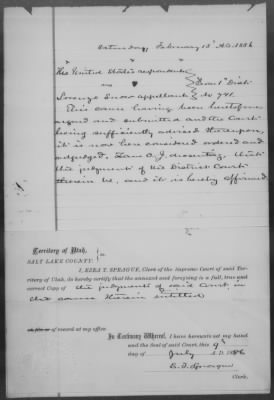 Saturday, February 13" A.D. 1886
The United States respondent
vs
Lorenzo Snow appellant No 741
From 1" Dist
This cause having been heretofore
argued and submitted and the Court
being sufficiently advised thereupon,
it is now here considered ordered and
adjudged, Zane C.J. dissenting, that
the judgment of the District Court
herein be, and it is hereby affirmed
Territory of Utah,
SALT LAKE COUNTY. ss
I, EZRA T. SPRAGUE, Clerk of the Supreme Court of said Territory of Utah, do hereby certify that the annexed and foregoing is a full, true and
correct Copy of the judgment of said Court in
the cause therein entitled
of record at my office.
In Testimony Whereof, I have hereunto set my hand
and the Seal of said Court this 9th
day of July A. D. 1886
E. T. Sprague
Clerk.